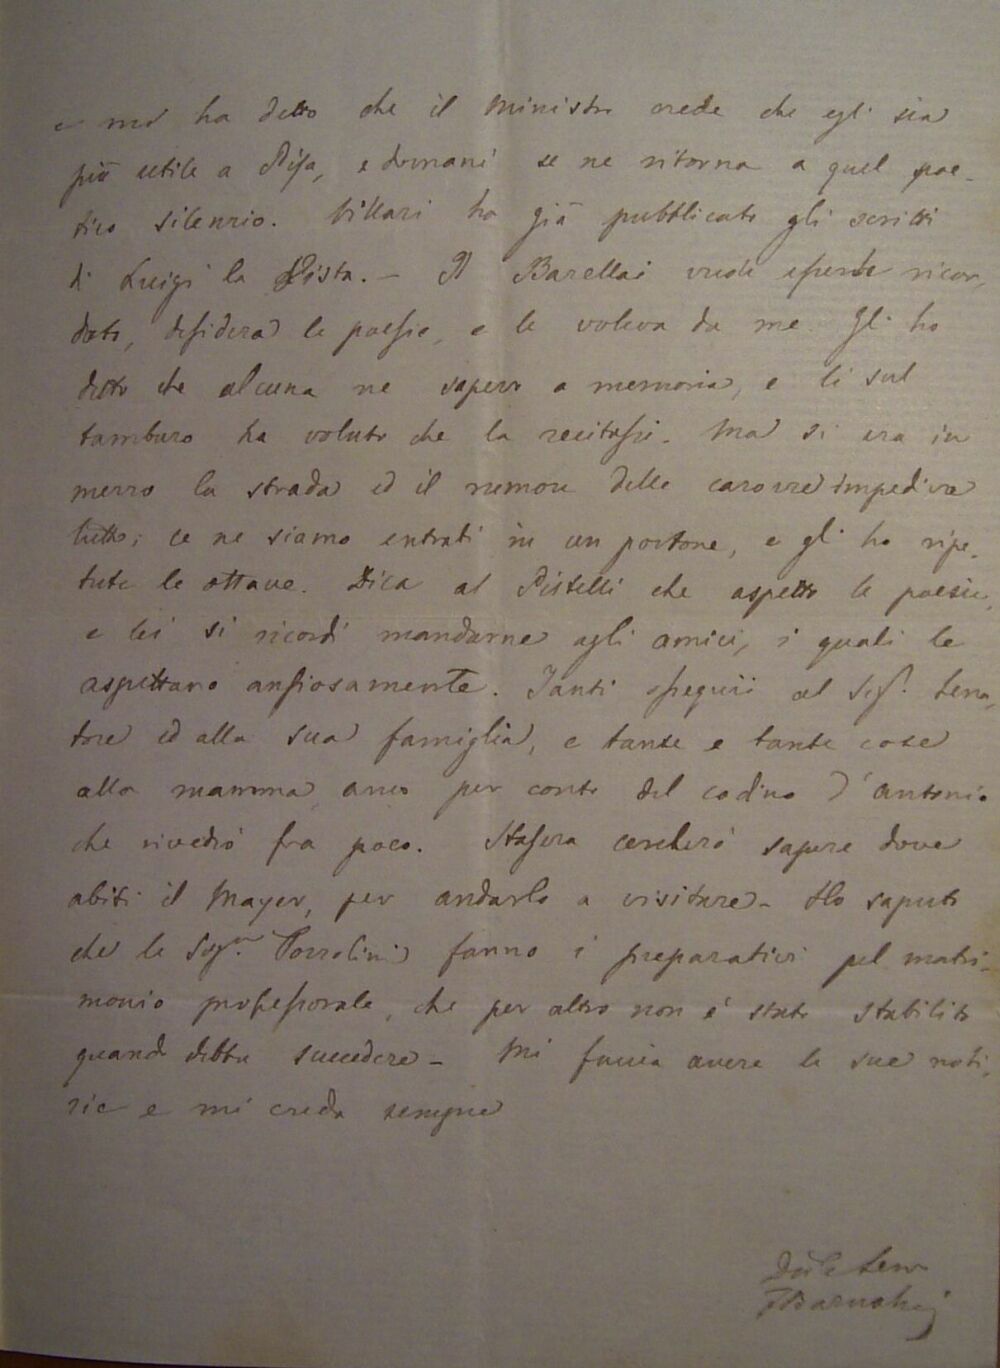 e mi ha detto che il Ministro crede che egli sia
più utile a Pisa, e domani se ne ritorna a quel poe-
tico silenzio. Villari ha già pubblicato gli scritti
di Luigi la Vista. – Il Barellai vuole essere ricor-
dato, desidera le poesie, e le voleva da me. Gli ho
detto che alcuna ne sapevo a memoria, e lì sul
tamburo ha voluto che la recitassi. Ma si era in
mezzo la strada ed il rumore delle carozze impediva
tutto; ce ne siamo entrati in un portone, e gli ho ripe-
tute le ottave. Dica al Pistelli che aspetto le poesie,
e lei si ricordi mandarne agli amici, i quali le
aspettano ansiosamente. Tanti ossequii al Sigr. Sena-
tore ed alla sua famiglia, e tante e tante cose
alla mamma, anco per conto del codino D'Antonio
che rivedrò fra poco. Stasera cercherò sapere dove
abiti il Mayer, per andarlo a visitare – Ho saputo
che le Sigre. Porrolini fanno i preparativi pel matri-
monio professorale, che per altro non è stato stabilito
quando debba succedere – Mi faccia avere le sue noti-
zie e mi creda sempre